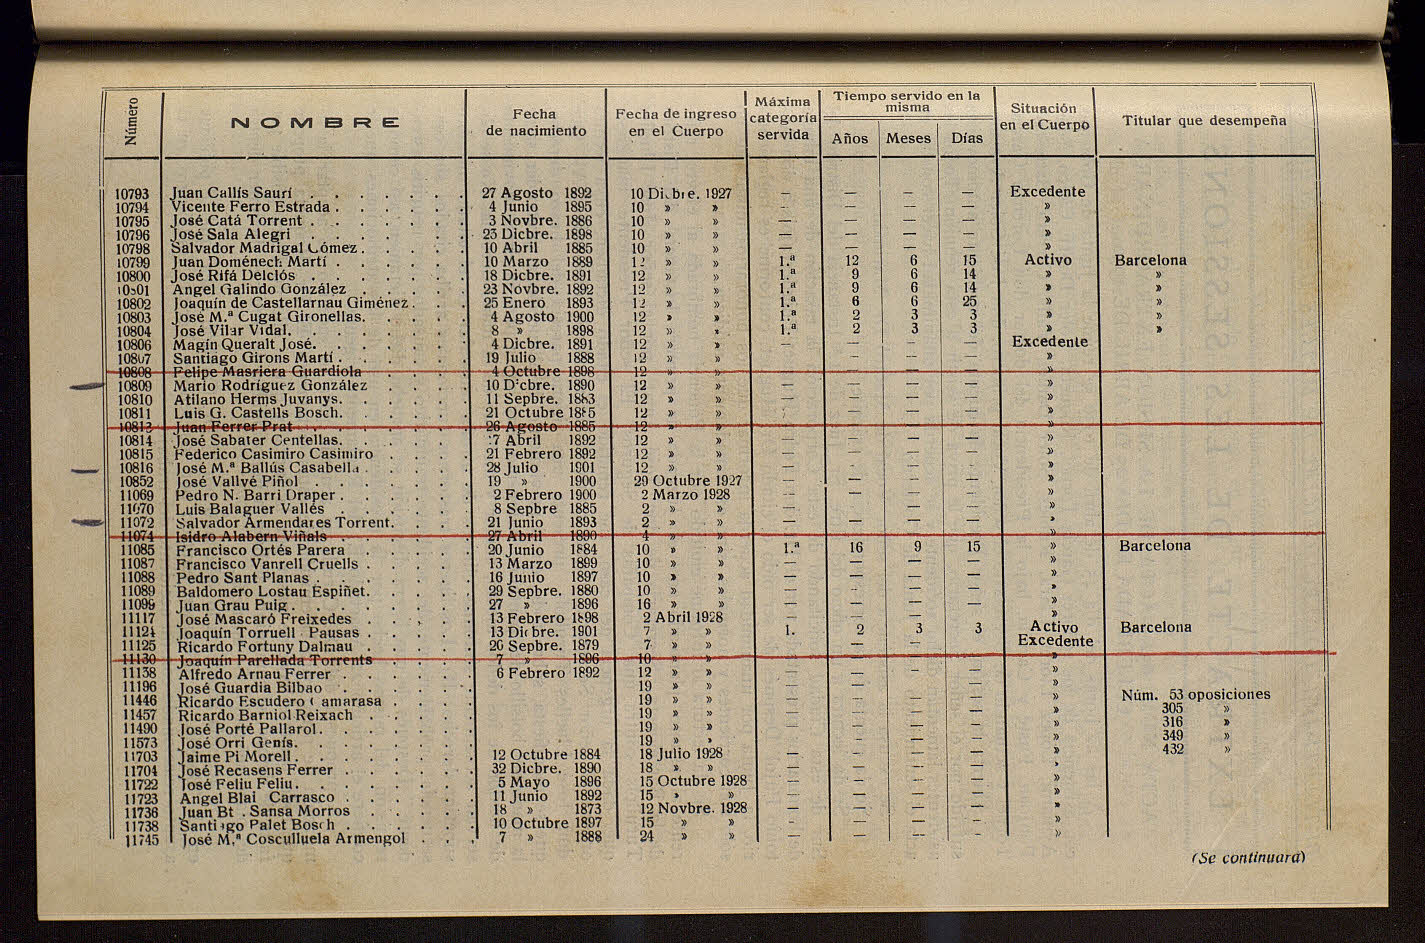 Número NOMBRE Fecha de nacimiento Fecha de ingreso en el Cuerpo Máxima categoría servida Tiempo servido en la misma Años Meses Días Situación en el Cuerpo Titular que desempeña
10793 Juan Callís Saurí 27 Agosto 1892 10 Dicbre. 1927 — — — — Excedente
10794 Vicente Ferro Estrada 4 Junio 1895 10 » » — — — — »
10795 José Catá Torrent 3 Novbre. 1886 10 » » — — — — »
10796 José Sala Alegri 23 Dicbre. 1898 10 » » — — — — »
10798 Salvador Madrigal Gómez 10 Abril 1885 10 » » — — — — »
10799 Juan Doménech Martí 10 Marzo 1889 12 » » 1.ª 12 6 15 Activo Barcelona
10800 José Rifá Delclós 18 Dicbre. 1891 12 » » 1.ª 9 6 14 » »
10801 Angel Galindo González 23 Novbre. 1892 12 » » 1.ª 9 6 14 » »
10802 Joaquín de Castellarnau Giménez 25 Enero 1893 12 » » 1.ª 6 6 25 » »
10803 José M.ª Cugat Gironellas. 4 Agosto 1900 12 » » 1.ª 2 3 3 » »
10804 José Vilar Vidal. 8 » 1898 12 » » 1.ª 2 3 3 » »
10806 Magín Queralt José. 4 Dicbre. 1891 12 » » — — — — Excedente
10807 Santiago Girons Martí 19 Julio 1888 12 » » — — — — »
10808 Felipe Masriera Guardiola 4 Octubre 1898 12 » » »
10809 Mario Rodríguez González 10 Dicbre. 1890 12 » » — — — — »
10810 Atilano Herms Juvanys. 11 Sepbre. 1883 12 » » — — — — »
10811 Luis G. Castells Bosch. 21 Octubre 1885 12 » » — — — — »
10813 Juan Ferrer Prat 26 Agosto 1885 12 » » »
10814 José Sabater Centellas. 7 Abril 1892 12 » » — — — — »
10815 Federico Casimiro Casimiro 21 Febrero 1892 12 » » — — — — »
10816 José M.ª Ballús Casabella 28 Julio 1901 12 » » — — — — »
10852 José Vallvé Piñol 19 » 1900 29 Octubre 1927 — — — — »
11069 Pedro N. Barri Draper 2 Febrero 1900 2 Marzo 1928 — — — — »
11070 Luis Balaguer Vallés 8 Sepbre 1885 2 » » — — — — »
11072 Salvador Armendares Torrent. 21 Junio 1893 2 » » — — — — »
11074 Isidro Alabern Viñals 27 Abril 1890 4 » » »
11085 Francisco Ortés Parera 20 Junio 1884 10 » » 1.ª 16 9 15 » Barcelona
11087 Francisco Vanrell Cruells 13 Marzo 1899 10 » » — — — — »
11088 Pedro Sant Planas 16 Junio 1897 10 » » — — — — »
11089 Baldomero Lostau Espiñet. 29 Sepbre. 1880 10 » » — — — — »
11099 Juan Grau Puig 27 » 1896 16 » » — — — — »
11117 José Mascaró Freixedes 13 Febrero 1898 2 Abril 1928 — — — — »
11124 Joaquín Torruell Pausas 13 Dicbre. 1901 7 » » 1. 2 3 3 Activo Barcelona
11125 Ricardo Fortuny Dalmau 26 Sepbre. 1879 7 » » — — — — Excedente
11130 Joaquín Parellada Torrents 7 » 1896 10 » » »
11138 Alfredo Arnau Ferrer 6 Febrero 1892 12 » » — — — — »
11196 José Guardia Bilbao 19 » » — — — — » Núm. 53 oposiciones
11446 Ricardo Escudero Camarasa 19 » » — — — — » 305 »
11457 Ricardo Barniol Reixach 19 » » — — — — » 316 »
11490 José Porté Pallarol. 19 » » — — — — » 349 »
11573 José Orri Genís. 19 » » — — — — » 432 »
11703 Jaime Pi Morell. 12 Octubre 1884 18 Julio 1928 — — — — »
11704 José Recasens Ferrer 32 Dicbre. 1890 18 » » — — — — »
11722 José Feliu Feliu. 5 Mayo 1896 15 Octubre 1928 — — — — »
11723 Angel Blai Carrasco 11 Junio 1892 15 » » — — — — »
11736 Juan Bt . Sansa Morros 18 » 1873 12 Novbre. 1928 — — — — »
11738 Santiago Palet Bosch 10 Octubre 1897 15 » » — — — — »
11745 José M.ª Cosculluela Armengol 7 » 1888 24 » » — — — — »
(Se continuará)